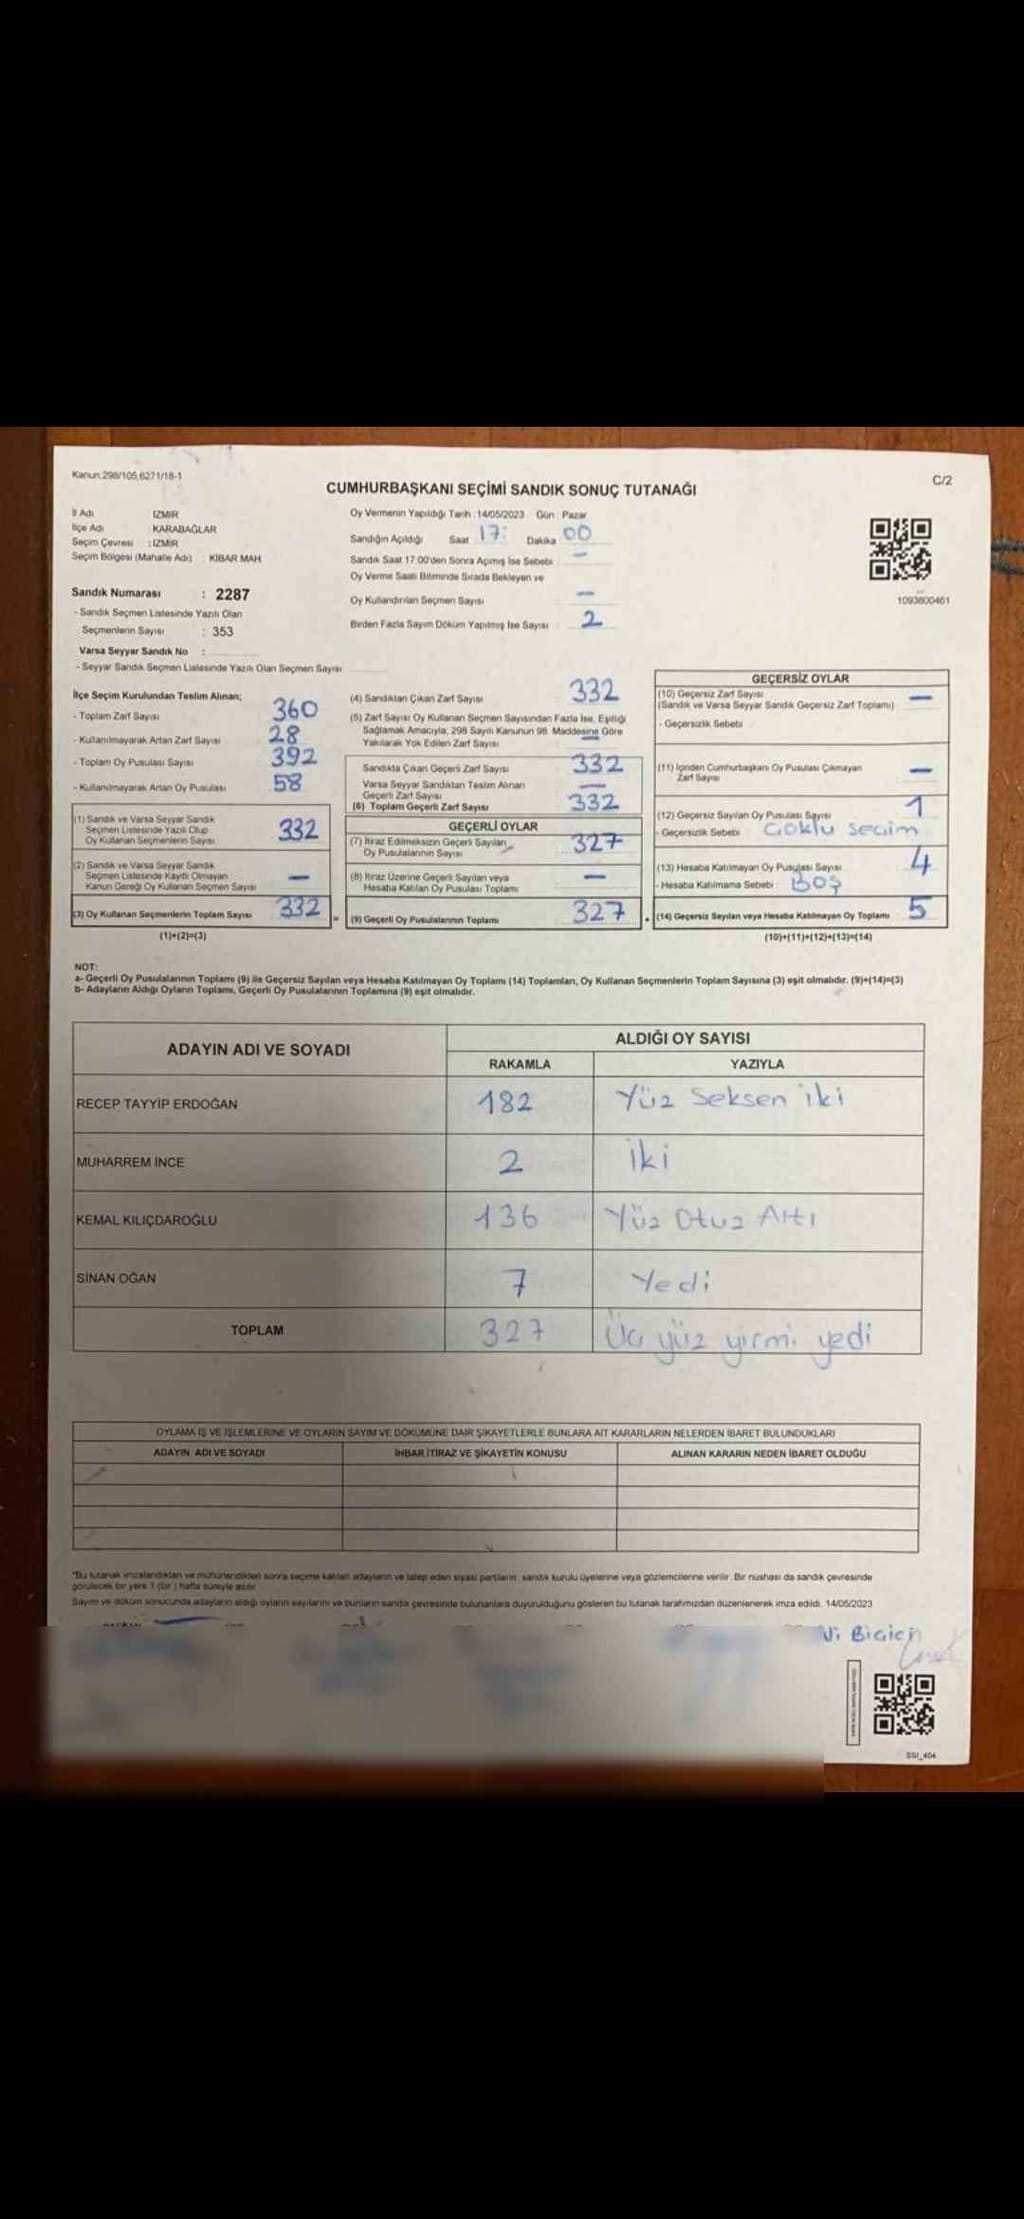 Kanun:298/105,6271/18-1
C/2
CUMHURBAŞKANI SEÇİMİ SANDIK SONUÇ TUTANAĞI
İl Adı İZMİR
İlçe Adı KARABAĞLAR
Seçim Çevresi : İZMİR
Seçim Bölgesi (Mahalle Adı) : KİBAR MAH
Sandık Numarası : 2287
- Sandık Seçmen Listesinde Yazılı Olan
Seçmenlerin Sayısı : 353
Varsa Seyyar Sandık No :
- Seyyar Sandık Seçmen Listesinde Yazılı Olan Seçmen Sayısı
Oy Vermenin Yapıldığı Tarih : 14/05/2023 Gün : Pazar
Sandığın Açıldığı Saat 17: Dakika 00
Sandık Saat 17:00'den Sonra Açılmış İse Sebebi : —
Oy Verme Saati Bitiminde Sırada Bekleyen ve
Oy Kullandırılan Seçmen Sayısı —
Birden Fazla Sayım Döküm Yapılmış İse Sayısı : 2
1093800461
İlçe Seçim Kurulundan Teslim Alınan;
- Toplam Zarf Sayısı 360
- Kullanılmayarak Artan Zarf Sayısı 28
- Toplam Oy Pusulası Sayısı 392
- Kullanılmayarak Artan Oy Pusulası 58
(1) Sandık ve Varsa Seyyar Sandık
Seçmen Listesinde Yazılı Olup
Oy Kullanan Seçmenlerin Sayısı 332
(2) Sandık ve Varsa Seyyar Sandık
Seçmen Listesinde Kayıtlı Olmayan
Kanun Gereği Oy Kullanan Seçmen Sayısı —
(3) Oy Kullanan Seçmenlerin Toplam Sayısı 332 =
(1)+(2)=(3)
(4) Sandıktan Çıkan Zarf Sayısı 332
(5) Zarf Sayısı Oy Kullanan Seçmen Sayısından Fazla İse, Eşitliği
Sağlamak Amacıyla; 298 Sayılı Kanunun 98. Maddesine Göre
Yakılarak Yok Edilen Zarf Sayısı —
Sandıkta Çıkan Geçerli Zarf Sayısı 332
Varsa Seyyar Sandıktan Teslim Alınan
Geçerli Zarf Sayısı —
(6) Toplam Geçerli Zarf Sayısı 332
GEÇERLİ OYLAR
(7) İtiraz Edilmeksizin Geçerli Sayılan
Oy Pusulalarının Sayısı 327
(8) İtiraz Üzerine Geçerli Sayılan veya
Hesaba Katılan Oy Pusulası Toplamı —
(9) Geçerli Oy Pusulalarının Toplamı 327 +
GEÇERSİZ OYLAR
(10) Geçersiz Zarf Sayısı
(Sandık ve Varsa Seyyar Sandık Geçersiz Zarf Toplamı) —
- Geçersizlik Sebebi :
(11) İçinden Cumhurbaşkanı Oy Pusulası Çıkmayan
Zarf Sayısı —
(12) Geçersiz Sayılan Oy Pusulası Sayısı 1
- Geçersizlik Sebebi : Çoklu seçim
(13) Hesaba Katılmayan Oy Pusulası Sayısı 4
- Hesaba Katılmama Sebebi : BOŞ
(14) Geçersiz Sayılan veya Hesaba Katılmayan Oy Toplamı 5
(10)+(11)+(12)+(13)=(14)
NOT:
a- Geçerli Oy Pusulalarının Toplamı (9) ile Geçersiz Sayılan veya Hesaba Katılmayan Oy Toplamı (14) Toplamları, Oy Kullanan Seçmenlerin Toplam Sayısına (3) eşit olmalıdır. (9)+(14)=(3)
b- Adayların Aldığı Oyların Toplamı, Geçerli Oy Pusulalarının Toplamına (9) eşit olmalıdır.
ADAYIN ADI VE SOYADI ALDIĞI OY SAYISI
RAKAMLA YAZIYLA
RECEP TAYYİP ERDOĞAN 182 Yüz Seksen iki
MUHARREM İNCE 2 iki
KEMAL KILIÇDAROĞLU 136 Yüz Otuz Altı
SİNAN OĞAN 7 Yedi
TOPLAM 327 Üç yüz yirmi yedi
OYLAMA İŞ VE İŞLEMLERİNE VE OYLARIN SAYIM VE DÖKÜMÜNE DAİR ŞİKAYETLERLE BUNLARA AİT KARARLARIN NELERDEN İBARET BULUNDUKLARI
ADAYIN ADI VE SOYADI İHBAR İTİRAZ VE ŞİKAYETİN KONUSU ALINAN KARARIN NEDEN İBARET OLDUĞU
*Bu tutanak imzalandıktan ve mühürlendikten sonra seçime katılan adayların ve talep eden siyasi partilerin sandık kurulu üyelerine veya gözlemcilerine verilir. Bir nüshası da sandık çevresinde
görülecek bir yere 1 (bir) hafta süreyle asılır.
Sayım ve döküm sonucunda adayların aldığı oyların sayılarını ve bunların sandık çevresinde bulunanlara duyurulduğunu gösteren bu tutanak tarafımızdan düzenlenerek imza edildi. 14/05/2023
SSI_404